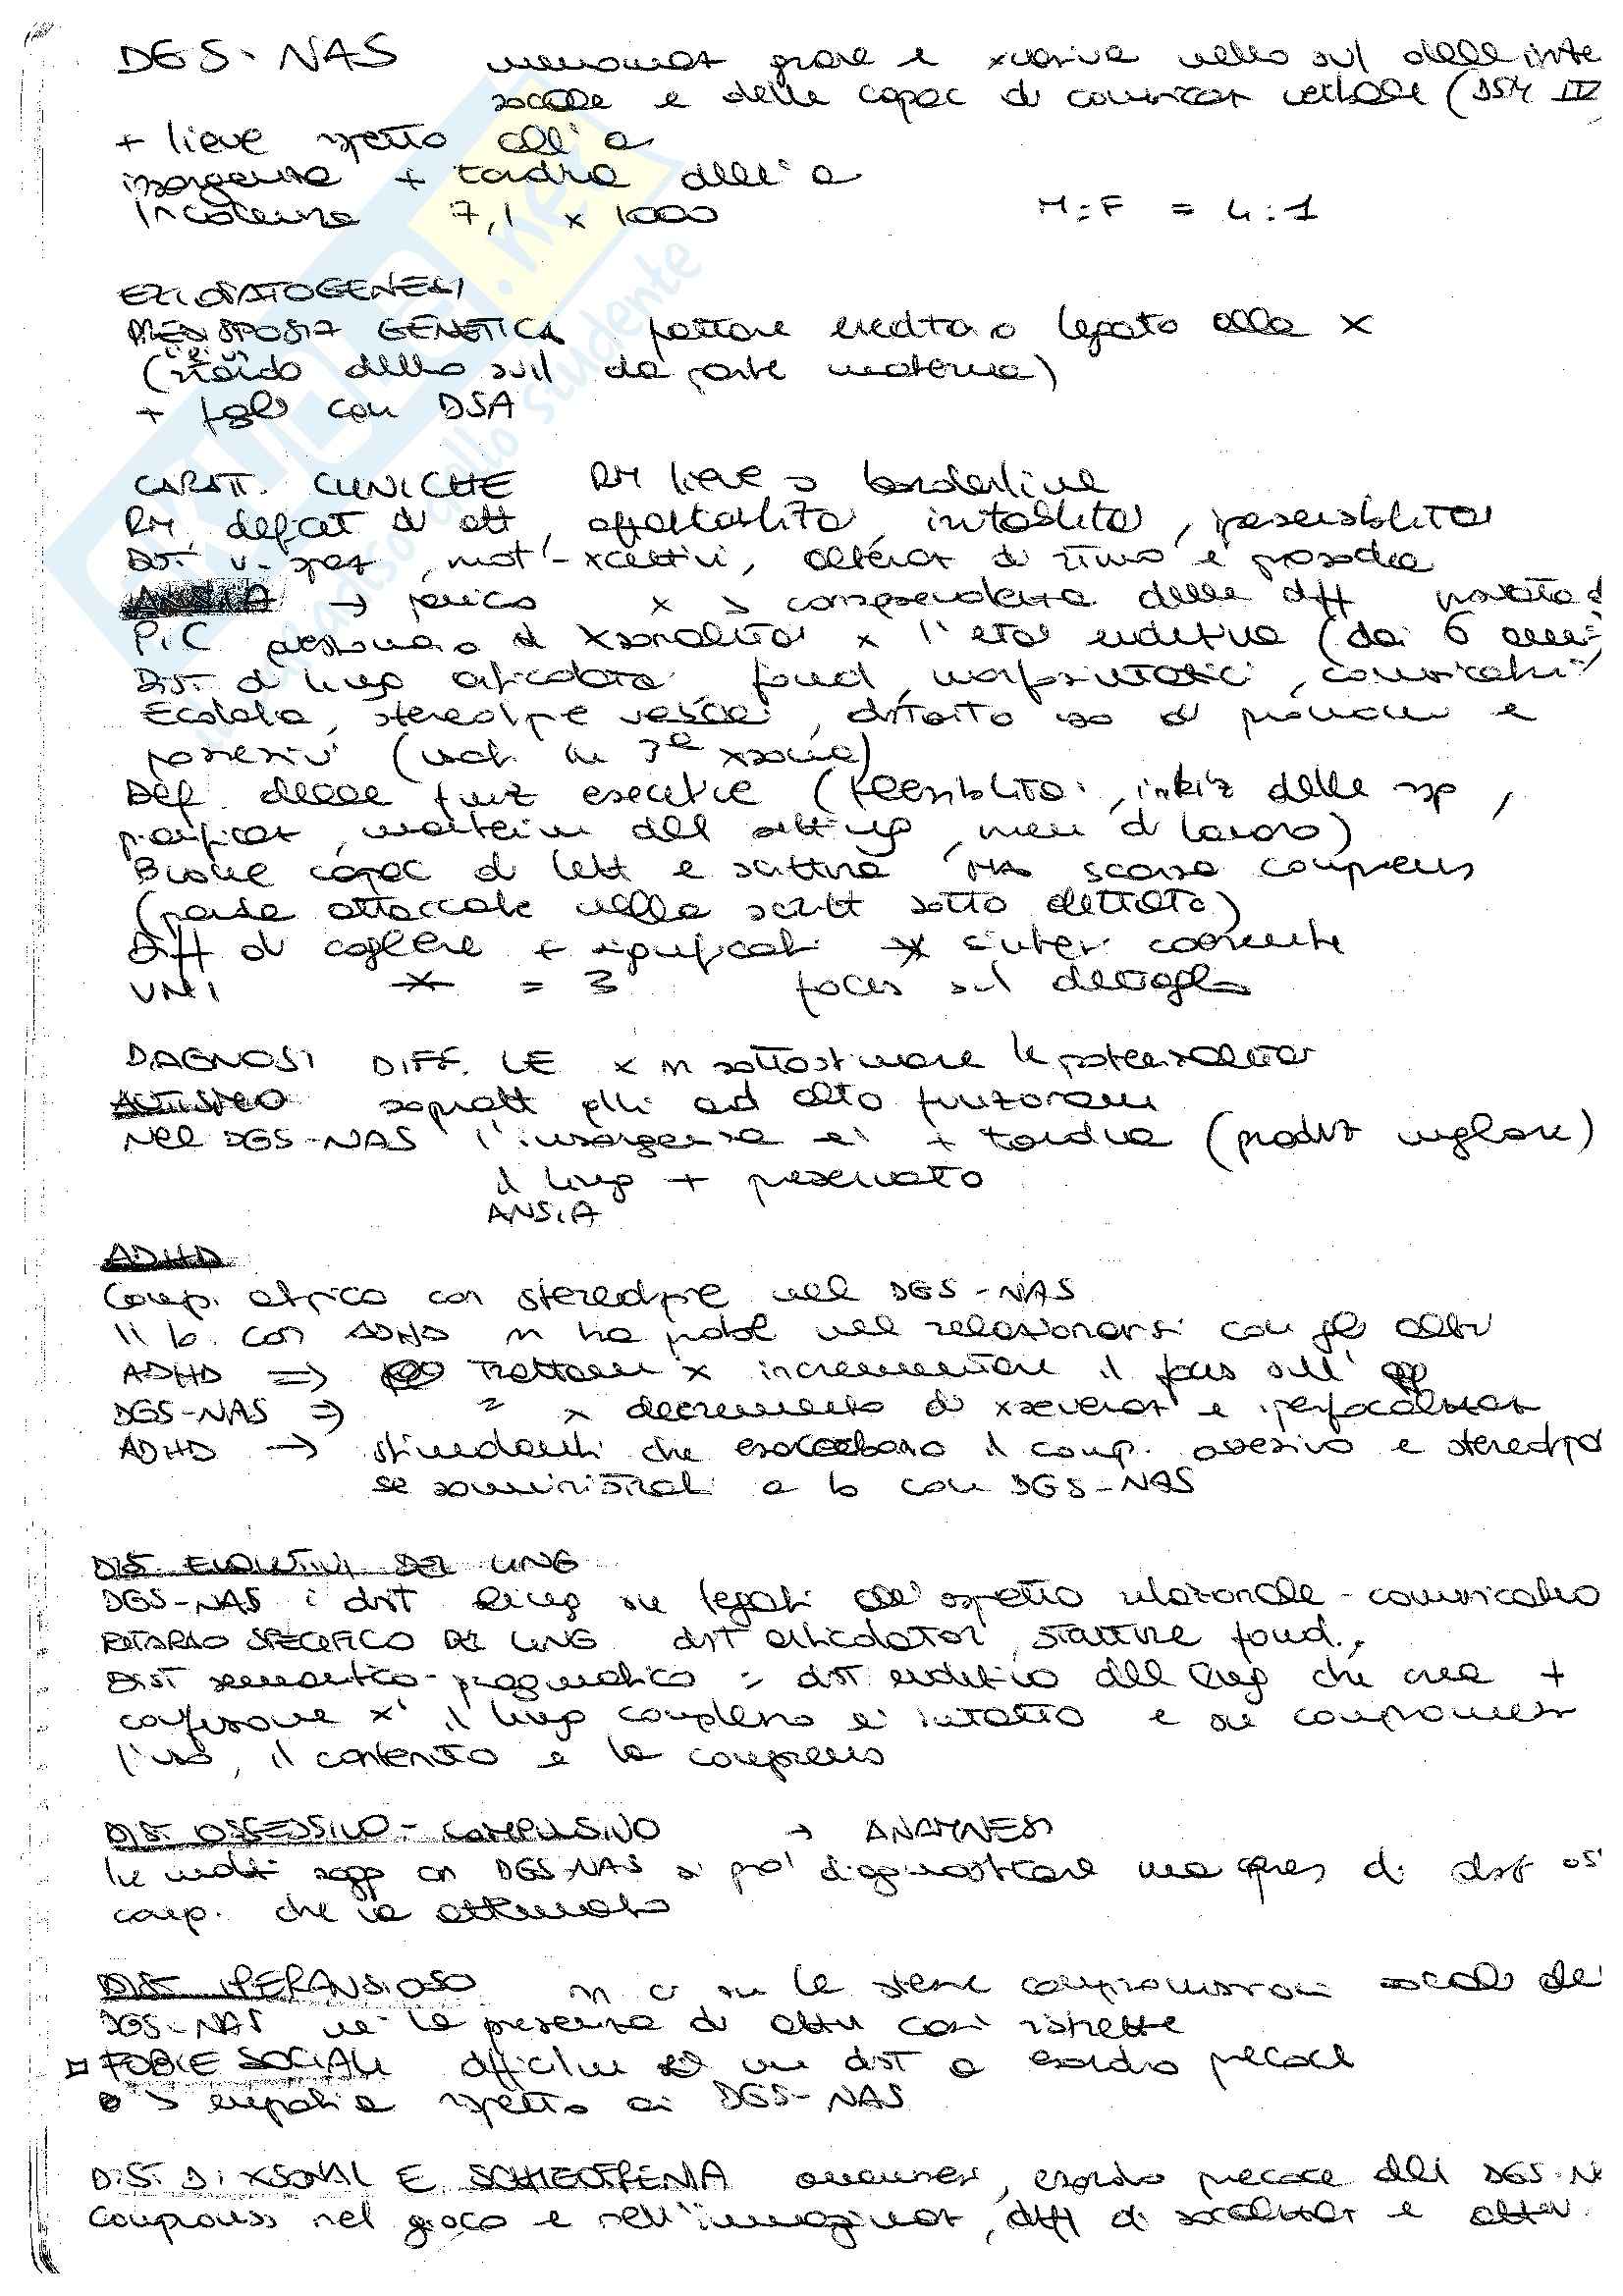 DGS-NAS menomaz grave e xvasiva nello svil delle inte
sociale e delle capac di comunicaz verbale (DSM IV
+ lieve rispetto all'a
insorgenza + tardiva dell'a
Incidenza 7,1 x 1000 M:F = 4:1
EZIOPATOGENESI
PREDISPOSIZ GENETICA fattore ereditario legato alla X
(ritardo dello svil da parte materna)
+ figli con DSA
CARATT. CLINICHE RM lieve o borderline
RM, deficit di att, affaticabilità, irritabilità, ipersensibilità
Dist v-spaz, mot-xcettivi, alteraz di ritmo e prosodia
ANSIA → panico x > consapevolezza delle diff
PIC di xsonalità x l'età evolutiva (dai 6 anni
Dist di ling articolatori, fonol, morfosintattici, comunicativi
Ecolalia, stereotipie vocali, distorto uso di pronomi e
possessivi (vedi in 3a xsona)
Def. delle funz esecutive (flessibilità, inibiz delle risp,
pianificaz, mantenim del setting, mem di lavoro)
Buone capac di lett e scrittura MA scarsa comprens
(parole attaccate nella scritt sotto dettato)
Diff di cogliere + significati x sintesi coerente
UNI = 3 focus sul dettaglio
DIAGNOSI DIFF.LE x n sottostimare le potenzialità
AUTISMO sopratt quelli ad alto funzionam
Nel DGS-NAS l'insorgenza è + tardiva (prodiz migliore)
il ling + preservato
ANSIA
ADHD
Comp. atipico con stereotipie nel DGS-NAS
Il b. con ADHD n ha probl nel relazionarsi con gli altri
ADHD ⇒ Trattam x incrementare il focus sull'
DGS-NAS ⇒ " x decremento di xseveraz e iperfocalizzaz
ADHD → stimolanti che esacerbano il comp. ossessivo e stereotipo
se somministrati a b con DGS-NAS
DIS. EVOLUTIVI DEL LING
DGS-NAS i dist ling sn legati all'aspetto relazionale-comunicativo
RITARDO SPECIFICO DEL LING dist articolatori, strutture fonol.,
Dist semantico-pragmatico = dist evolutivo del ling che crea +
confusione x' il ling complesso è intatto e si compromett
l'uso, il contenuto e la comprens
DIST. OSSESSIVO-COMPULSIVO → ANAMNESI
In molti sogg con DGS-NAS si può diagnosticare una specie di dist os
comp. che va attenuato
DIST IPERANSIOSO n ci sn le stesse compromissioni sociali del
DGS-NAS nè la presenza di attiv così ristrette
FOBIE SOCIALI difficilm un dist a esordio precoce
> empatia rispetto ai DGS-NAS
DIST DI XSONAL E SCHIZOFRENIA anamnesi, esordio precoce del DGS-N
Compromiss nel gioco e nell'immaginaz, diff di socializzaz e attiv.